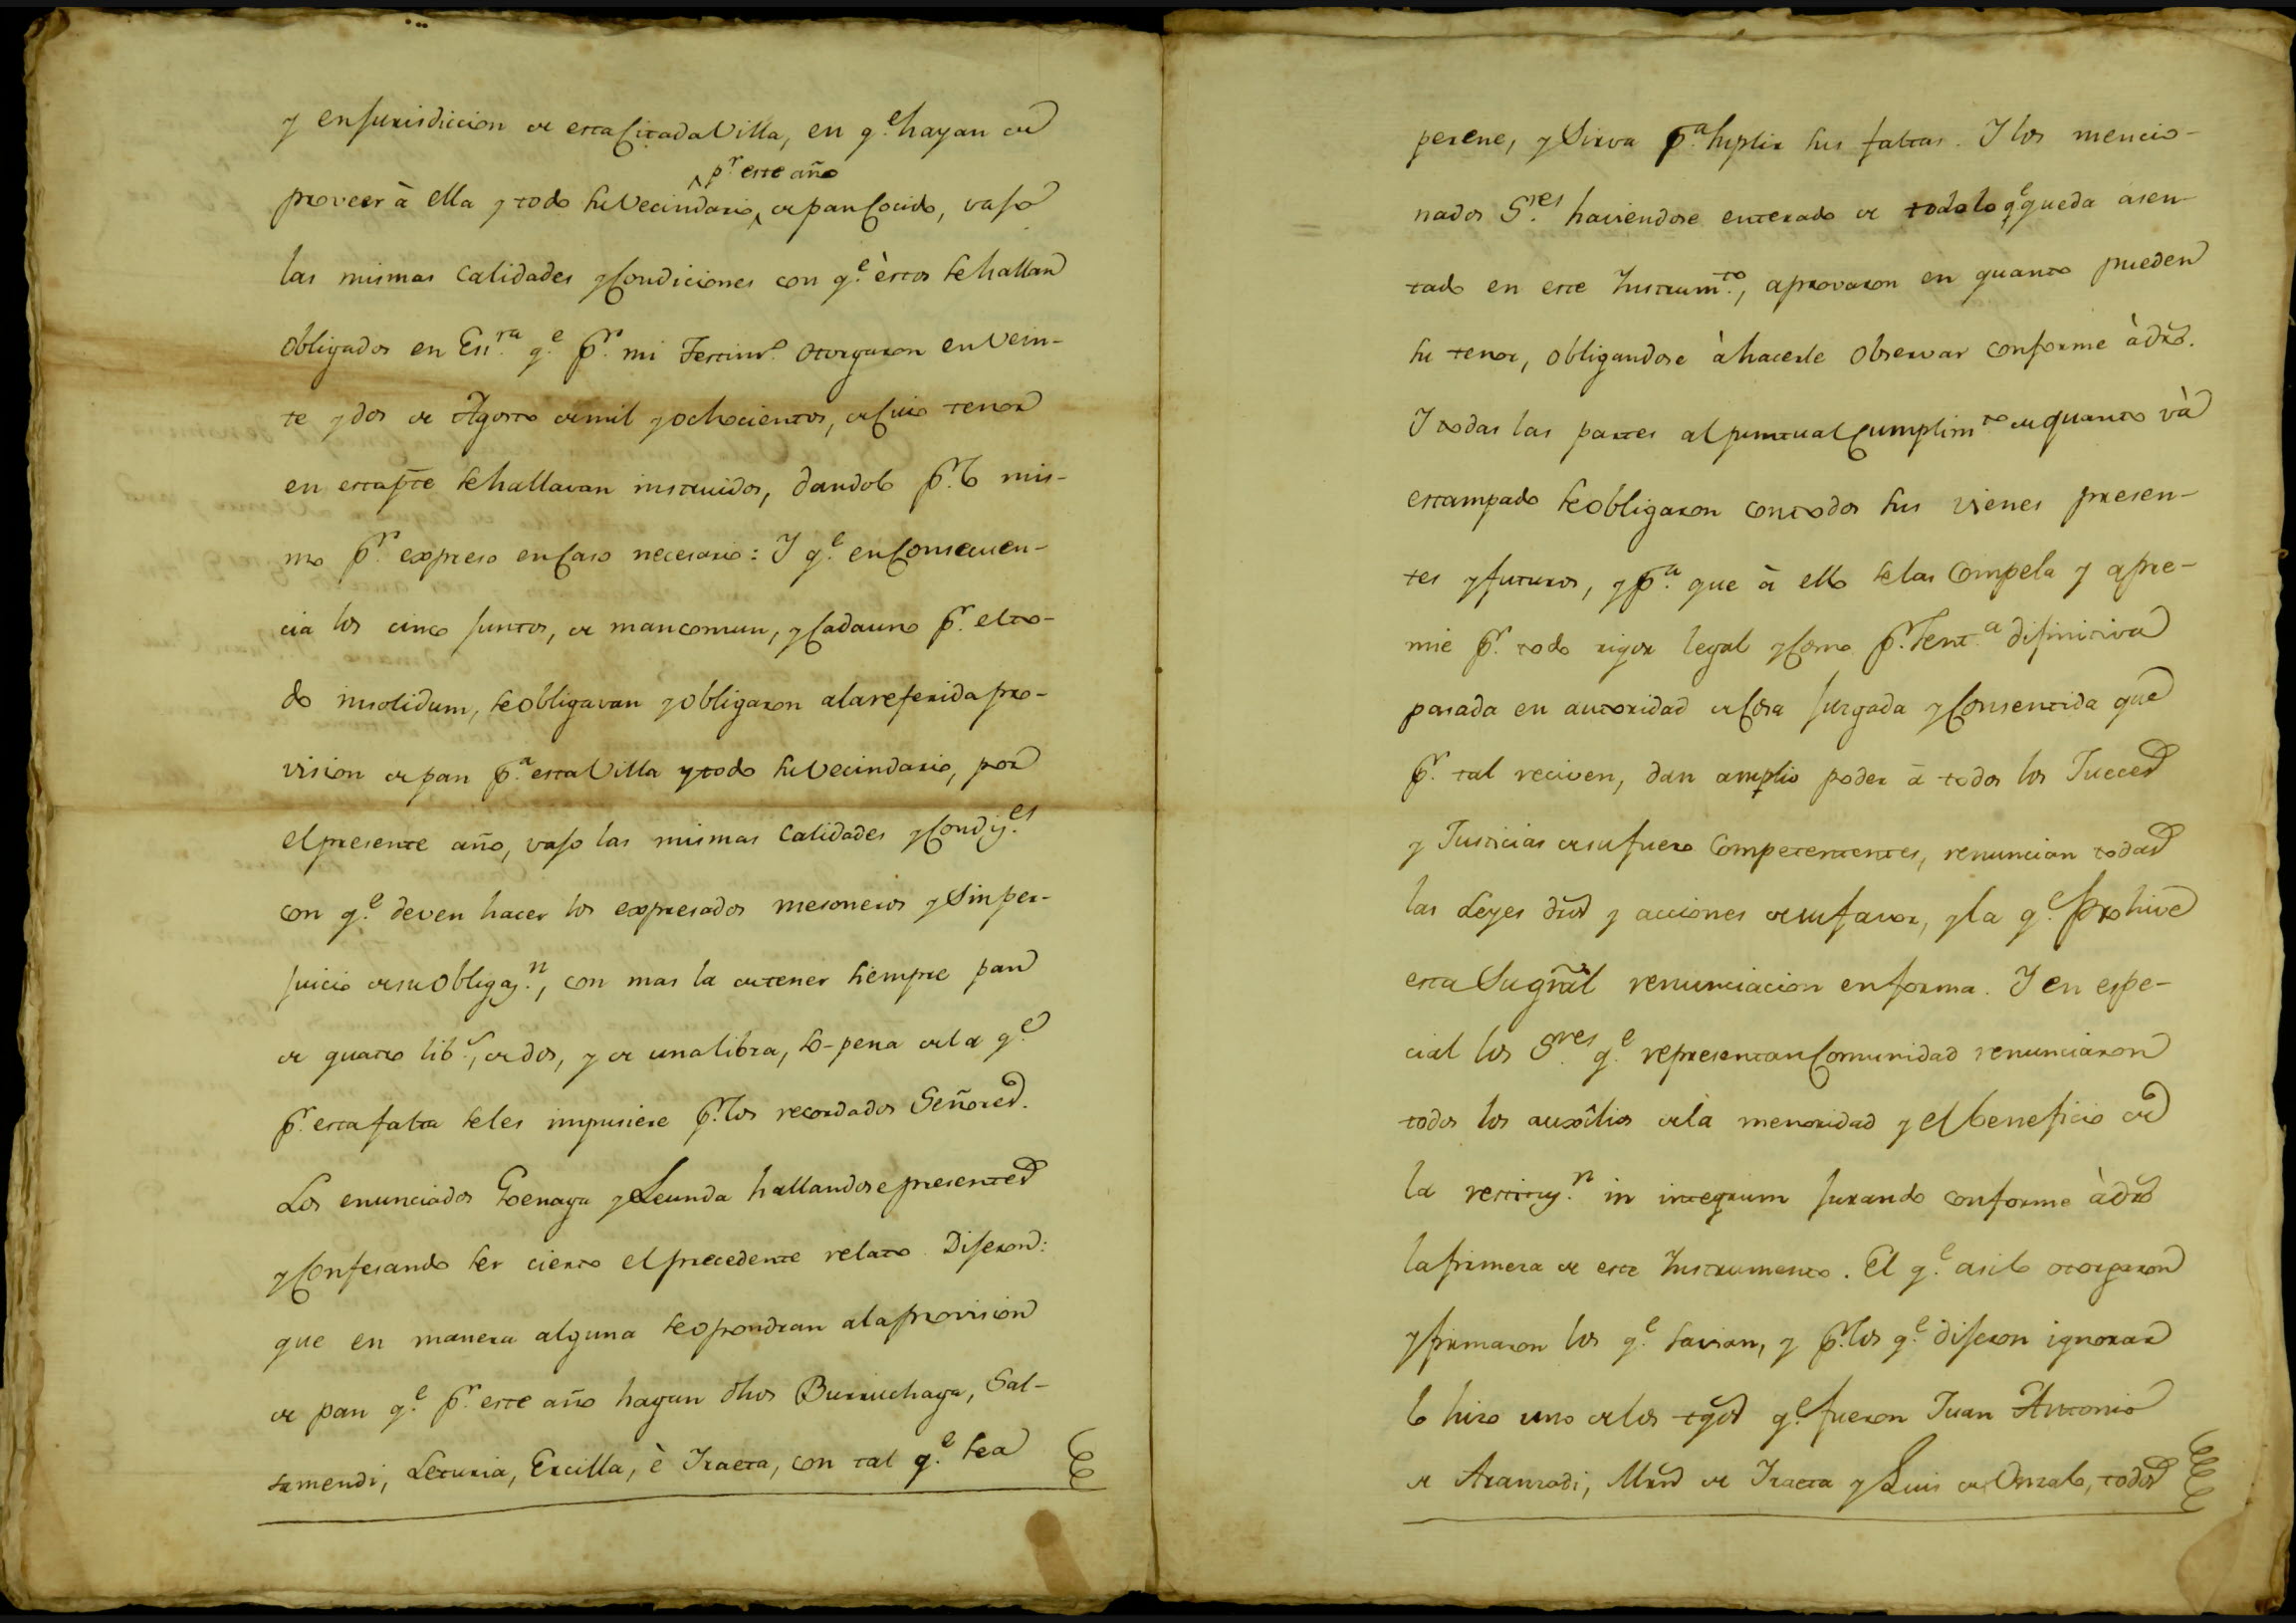 y en jurisdiccion de esta Citada Villa, en q.e hayan de
pr este año
proveer à ella y todo su Vecindario, de pan Cocido, vajo
las mismas Calidades y Condiciones con q.e èstos se hallan
obligados en Esc.ra q.e p.r mi Testim.o otorgaron en Vein-
te y dos de Agosto de mil y ochocientos, de Cuio tenor
en esta pte se hallavan instruidos, dandolo p.r lo mis-
mo p.r expreso en Caso necesario: Y q.e en Consecuen-
cia los cinco juntos, de mancomun, y Cada uno p.r el to-
do insolidum, se obligavan y obligaron a la referida pro-
vision de pan p.a esta Villa y todo su Vecindario, por
el presente año, vajo las mismas Calidades y Condiz.es
con q.e deven hacer los expresados mesoneros y Sin per-
juicio de su Obligaz.n, con mas la de tener siempre pan
de quatro lib.s, de dos, y de una libra, so-pena de la q.e
p.r esta falta se les impusiere p.r los recordados Señores.
Los enunciados Goenaga y Leunda hallandose presentes
y Confesando ser cierto el precedente relato Dijeron:
que en manera alguna se opondran a la provision
de pan q.e p.r este año hagan dhos Burruchaga, Sal-
samendi, Leturia, Ercilla, è Iraeta, con tal q.e sea
perene, y Sirva p.a suplir sus faltas. Y los mencio-
nados S.res haviendose enterado de todo lo q.e queda asen-
tado en este Instrum.to, aprovaron en quanto pueden
su tenor, obligandose à hacerle observar conforme à dro.
Y todas las partes al puntual Cumplim.to de quanto và
estampado se obligaron con todos sus vienes presen-
tes y futuros, y p.a que à ello se las Compela y apre-
mie p.r todo rigor legal y Como p.r Sent.a difinitiva
pasada en autoridad de Cosa juzgada y Consentida que
p.r tal reciven, dan amplio poder à todos los Jueces
y Justicias de su fuero Competententes, renuncian todas
las Leyes dros y acciones de su favor, y la q.e Prohive
esta Su gral renunciacion en forma. Y en espe-
cial los S.res q.e representan Comunidad renunciaron
todos los auxîlios de la menoridad y el beneficio de
la restituz.n in integrum jurando conforme à dro
la firmeza de este Instrumento. El q.e asi lo otorgaron
y firmaron los q.e savian, y p.r los q.e dijeron ignorar
lo hizo uno de los tgos q.e fueron Juan Antonio
de Aranzadi, Mrñ de Iraeta y Luis de Onzalo, todos